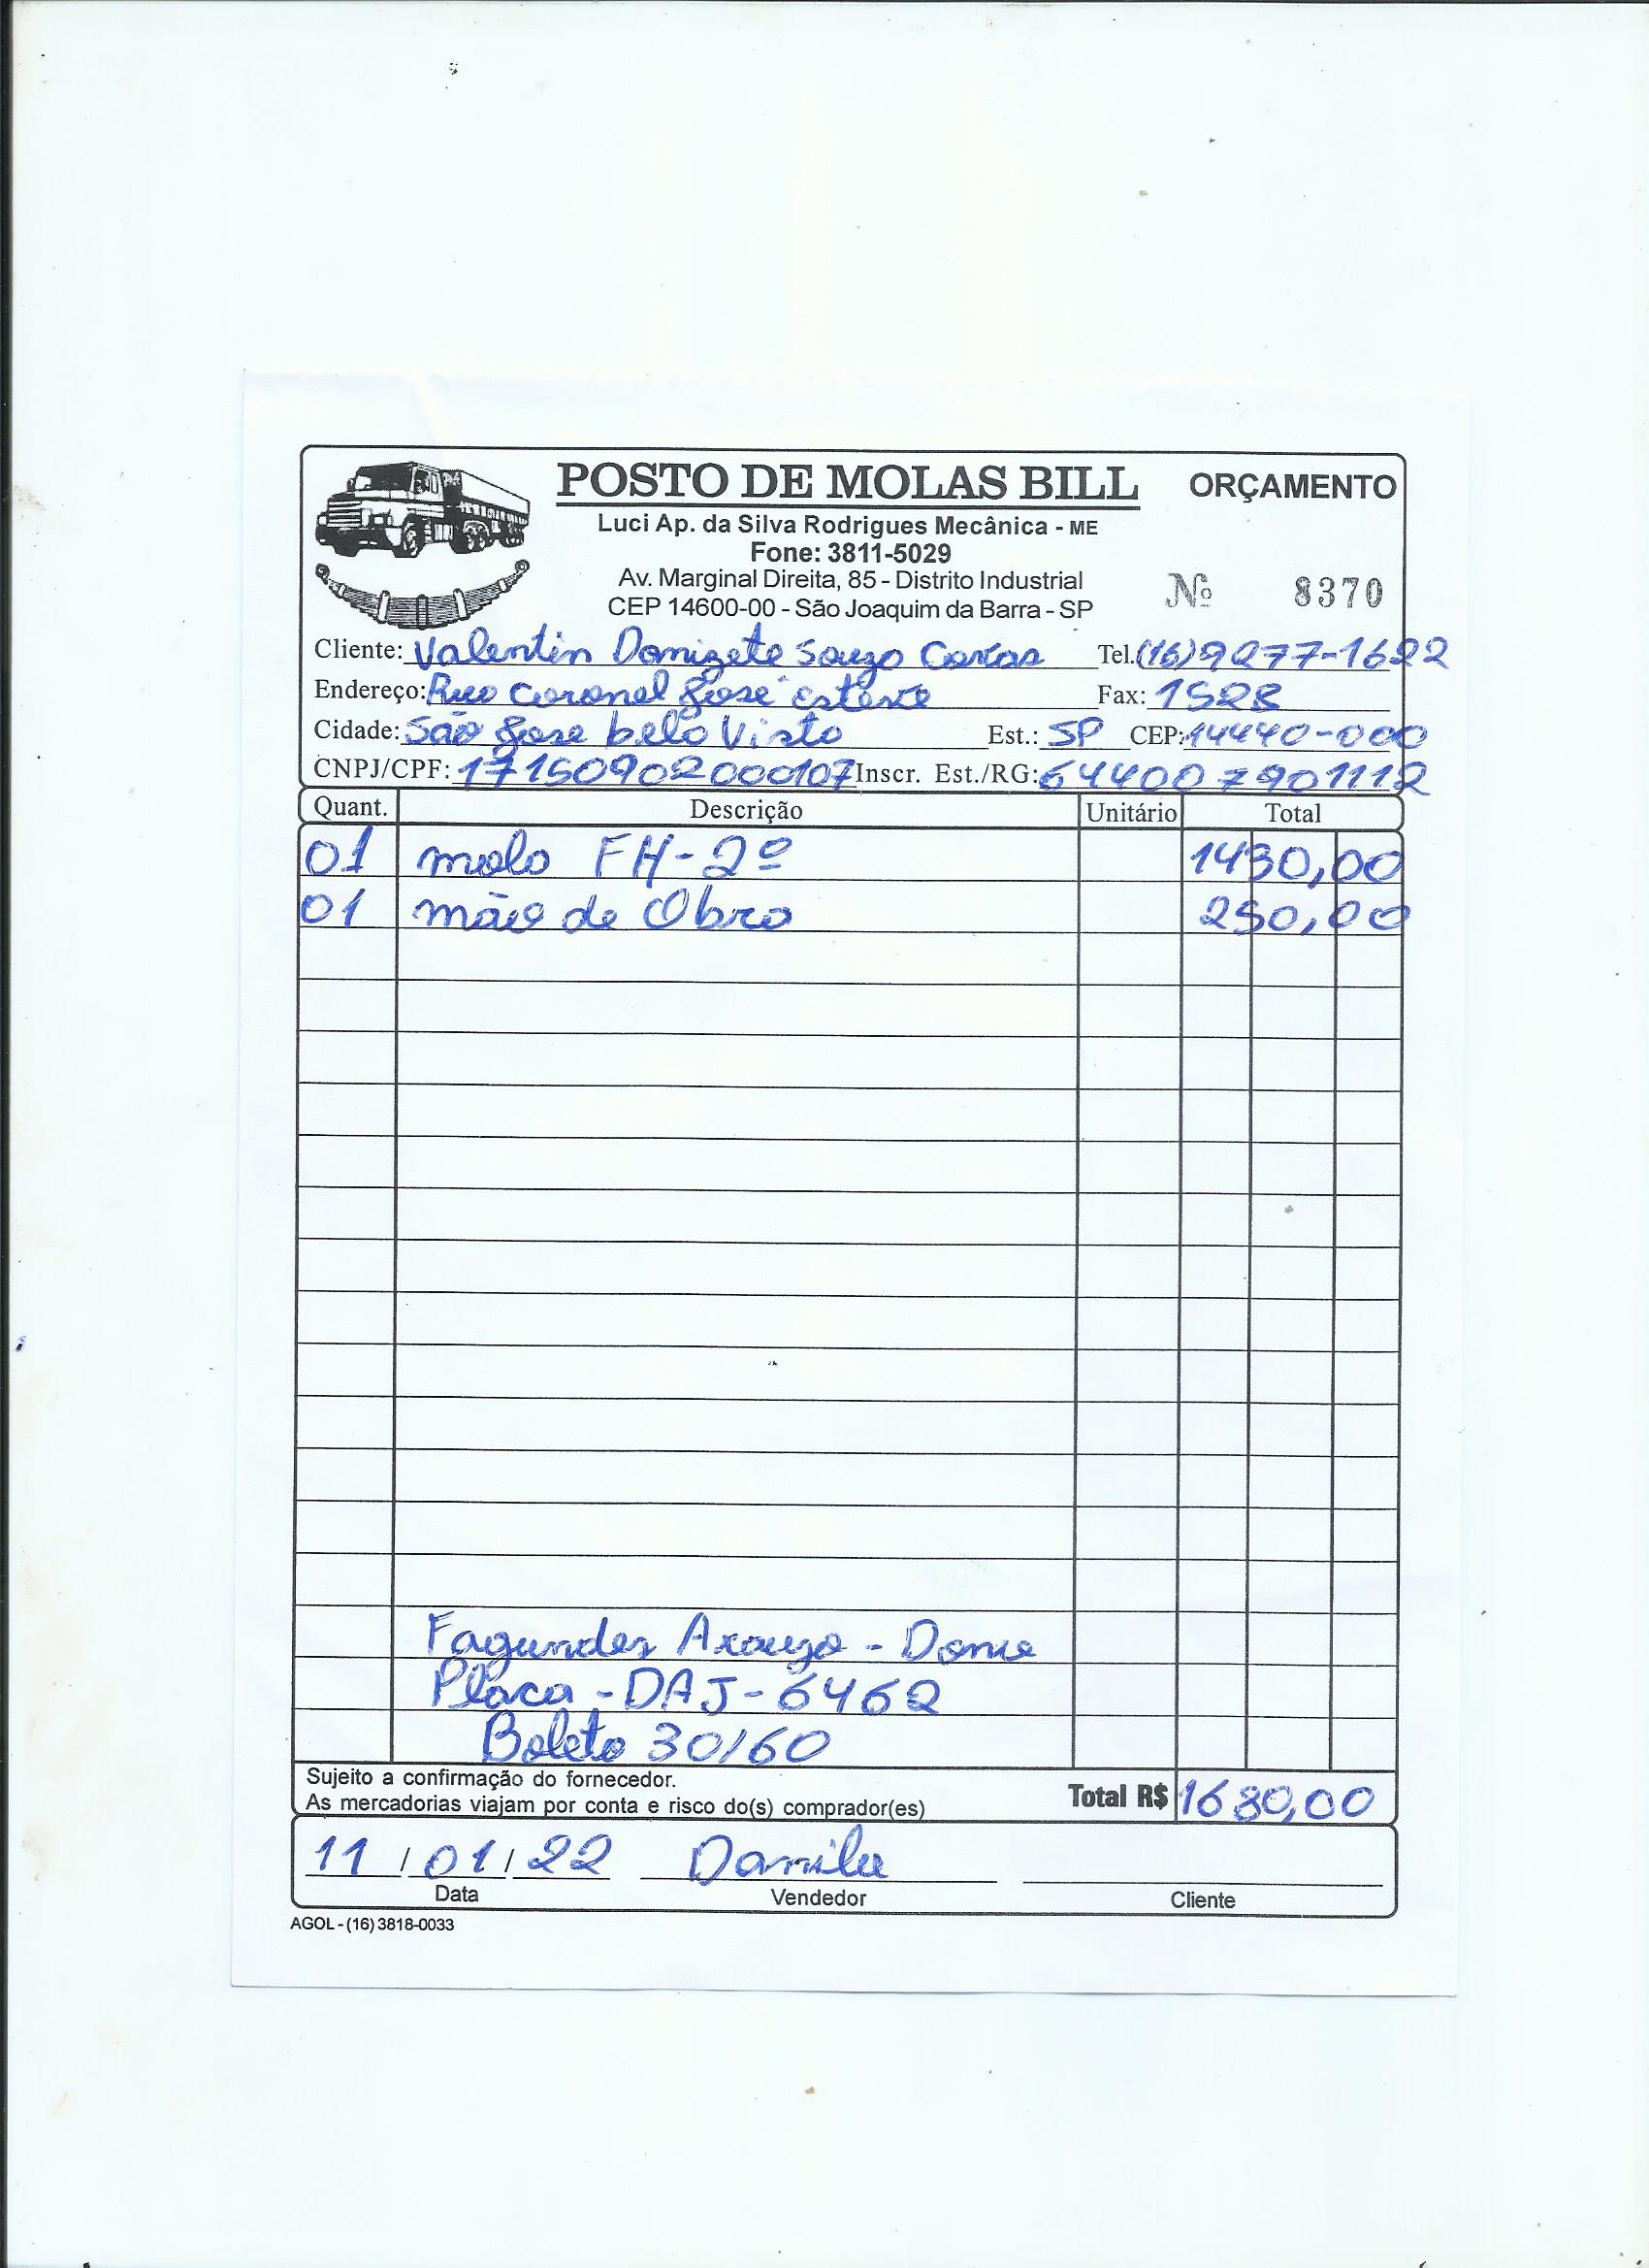 POSTO DE MOLAS BILL ORÇAMENTO
Luci Ap. da Silva Rodrigues Mecânica - ME
Fone: 3811-5029
Av. Marginal Direita, 85 - Distrito Industrial
CEP 14600-00 - São Joaquim da Barra - SP
Nº 8370
Cliente: Valentin Donizete Souza Tel. (16) 9277-1622
Endereço: Rua Coronel Jose Esteve Fax: 1528
Cidade: São Jose bela Vista Est.: SP CEP: 14440-000
CNPJ/CPF: 17150902000107 Inscr. Est./RG: 644007901112
Quant. Descrição Unitário Total
01 mola FH-2º 1430,00
01 mão de Obra 250,00
Fagundes Araujo -
Placa - DAJ-6462
Boleto 30/60
Sujeito a confirmação do fornecedor.
As mercadorias viajam por conta e risco do(s) comprador(es) Total R$ 1680,00
11 / 01 / 22 Danilu
Data Vendedor Cliente
AGOL - (16) 3818-0033